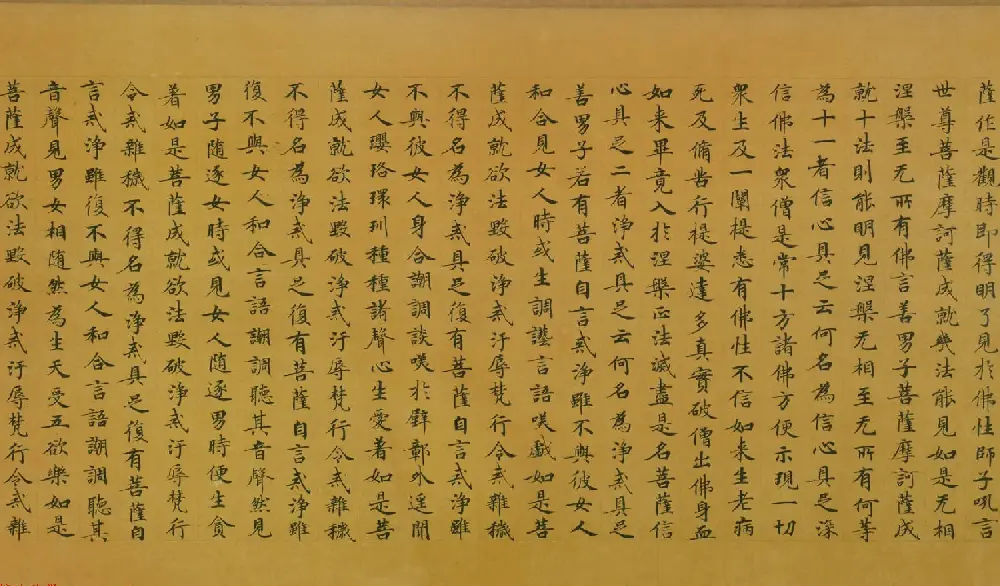 薩作是觀時即得明了見於佛性師子吼言
世尊菩薩摩訶薩成就幾法能見如是无相
涅槃至无所有佛言善男子菩薩摩訶薩成
就十法則能明見涅槃无相至无所有何等
為十一者信心具足云何名為信心具足深
信佛法衆僧是常十方諸佛方便示現一切
衆生及一闡提悉有佛性不信如来生老病
死及脩苦行提婆達多真實破僧出佛身血
如来畢竟入於涅槃正法滅盡是名菩薩信
心具足二者淨戒具足云何名為淨戒具足
善男子若有菩薩自言戒淨雖不與彼女人
和合見女人時或生調謔言語咲戲如是菩
薩成就欲法毀破淨戒汙辱梵行令戒雜穢
不得名為淨戒具足復有菩薩自言戒淨雖
不與彼女人身合謿調談咲於壁鄣外遥聞
女人瓔珞環玔種種諸聲心生愛著如是菩
薩成就欲法毀破淨戒汙辱梵行令戒雜穢
不得名為淨戒具足復有菩薩自言戒淨雖
復不與女人和合言語謿調聽其音聲然見
男子随逐女時或見女人随逐男時便生貪
著如是菩薩成就欲法毀破淨戒汙辱梵行
令戒雜穢不得名為淨戒具足復有菩薩自
言戒淨雖復不與女人和合言語謿調聽其
音聲見男女相随然為生天受五欲樂如是
菩薩成就欲法毀破淨戒汙辱梵行令戒雜